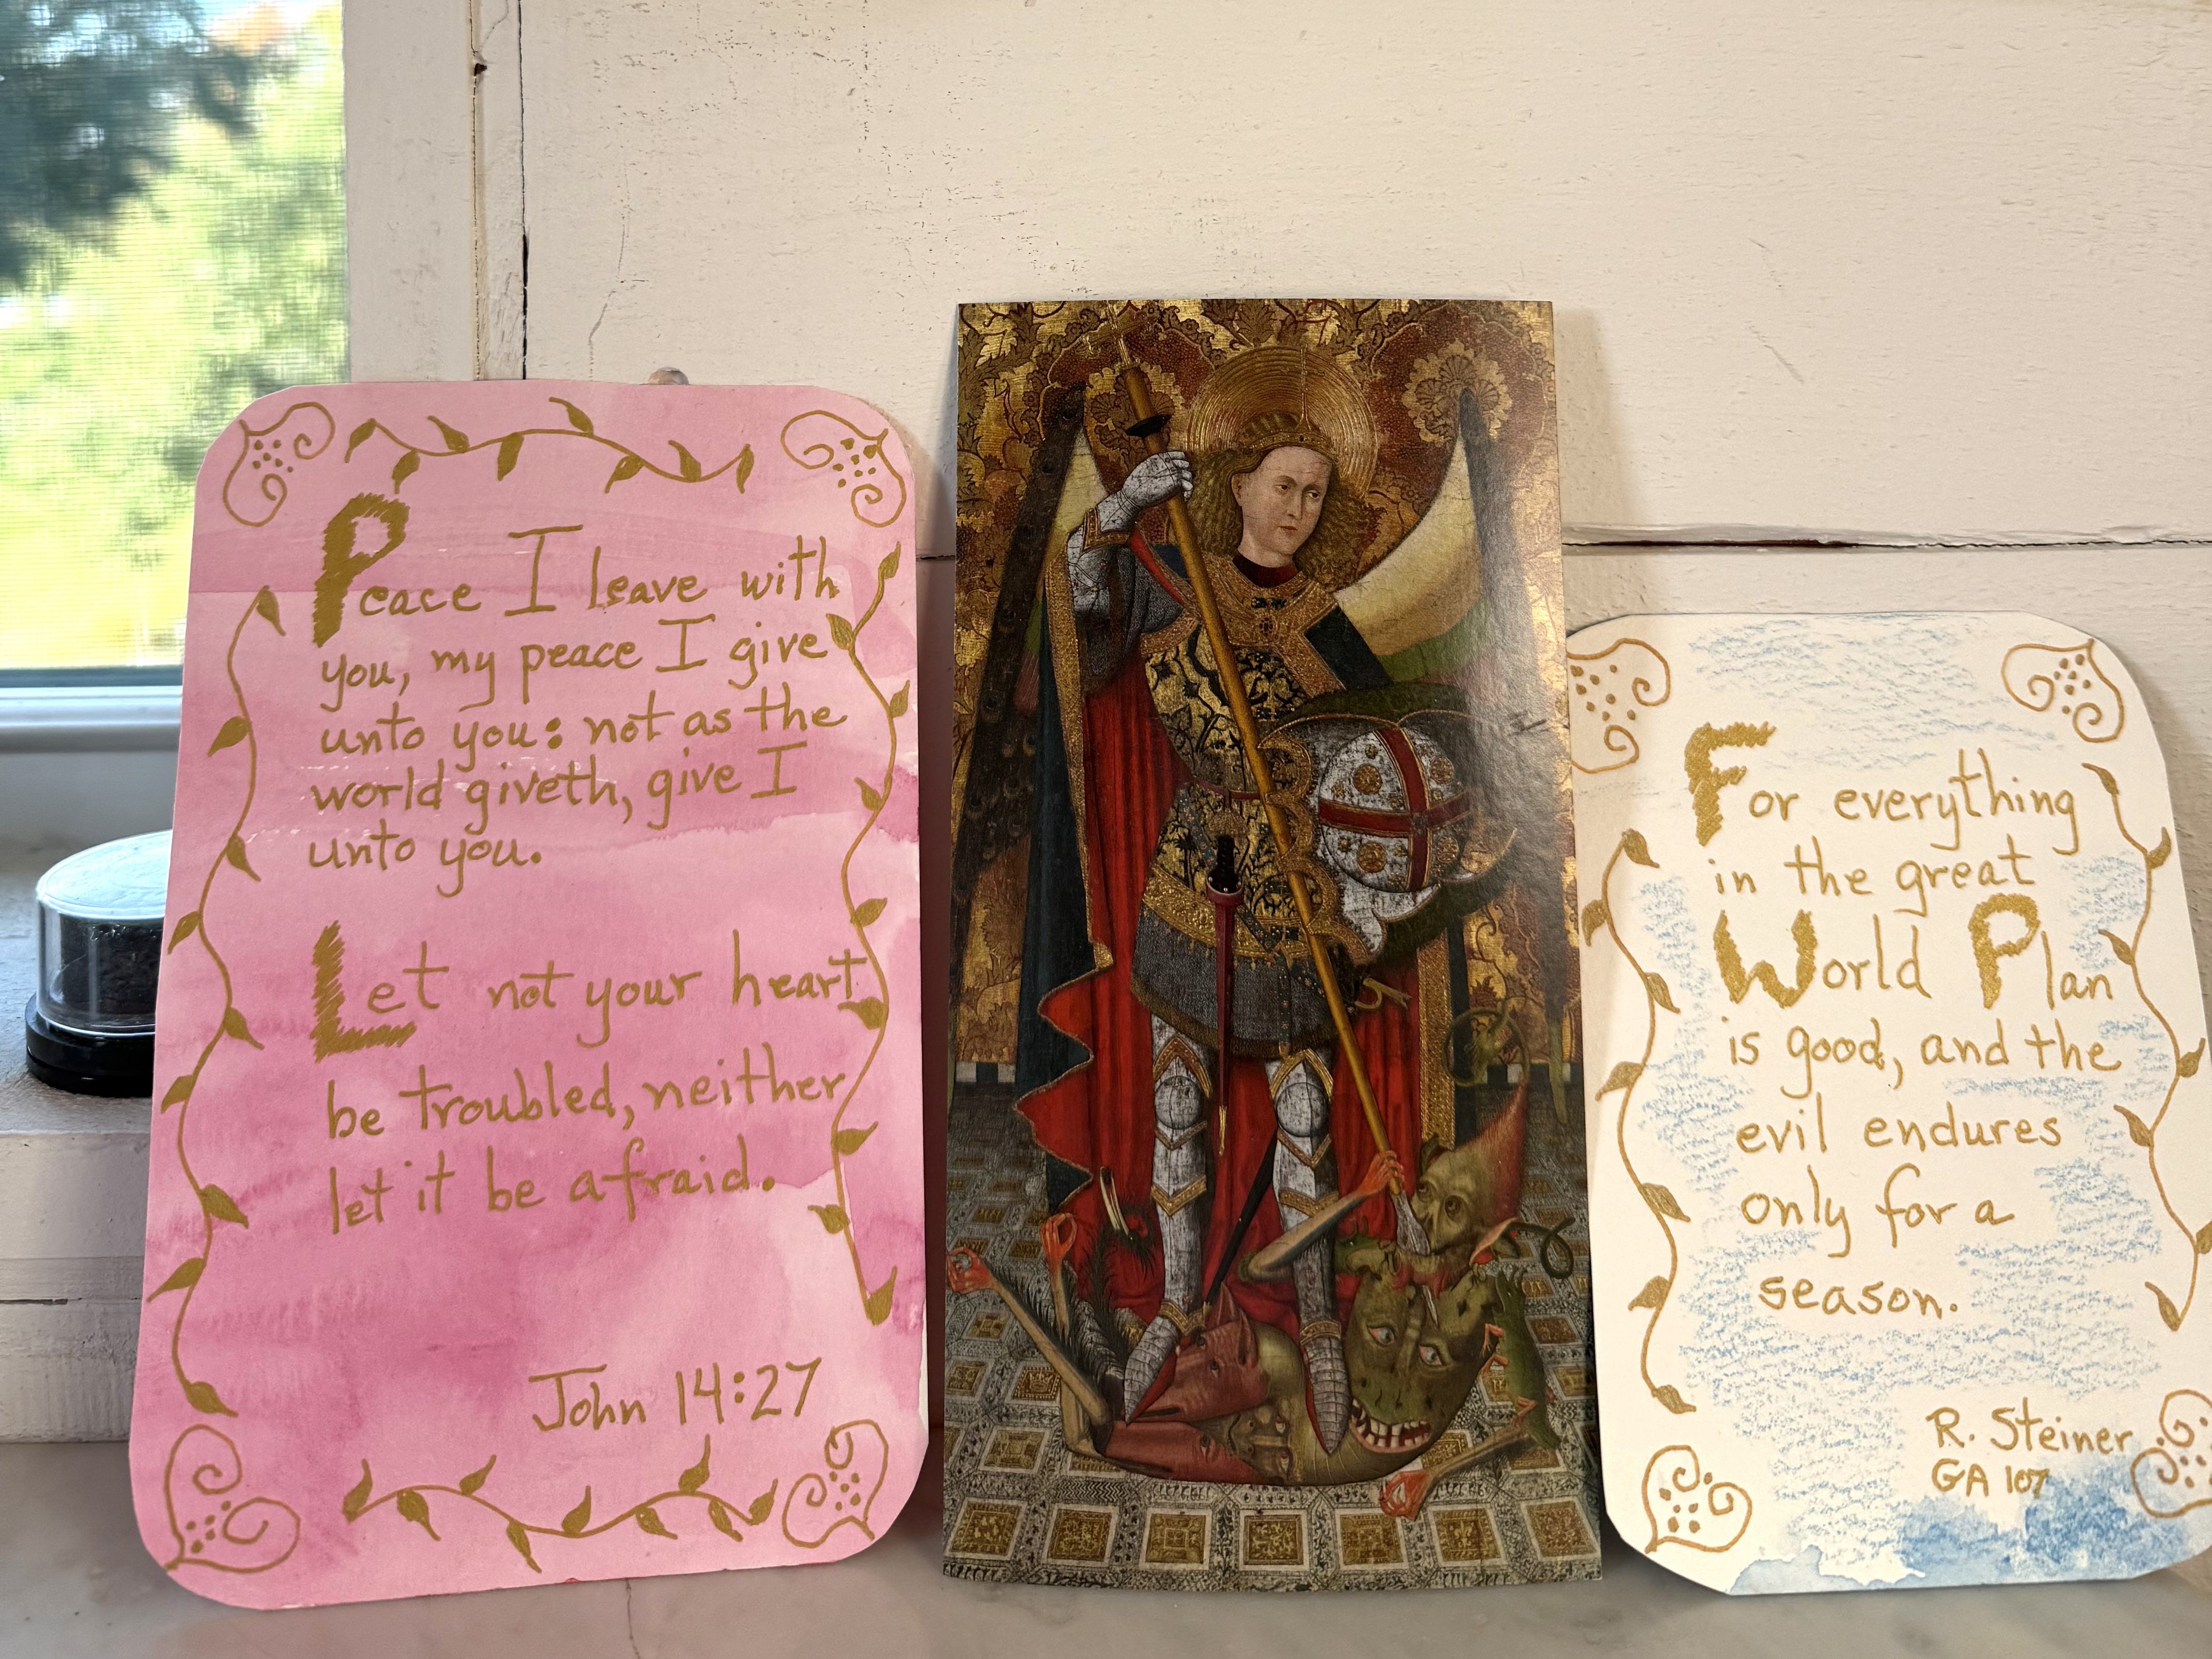 Peace I leave with
you, my peace I give
unto you: not as the
world giveth, give I
unto you.
Let not your heart
be troubled, neither
let it be afraid.
John 14:27
For everything
in the great
World Plan
is good, and the
evil endures
only for a
season.
R. Steiner
GA 107